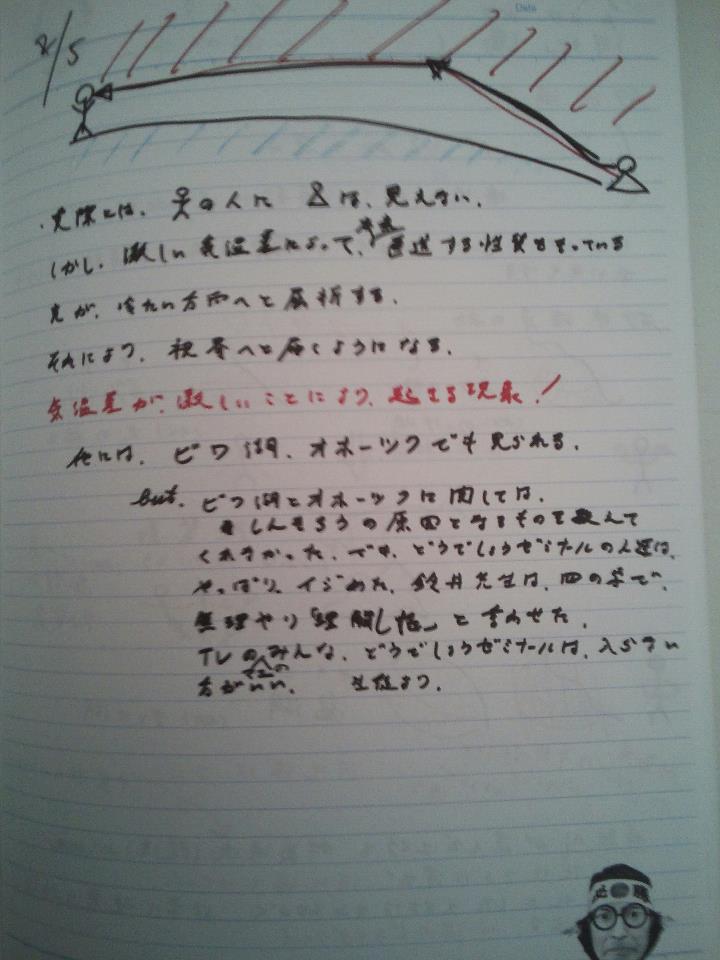 Date
8/5
・実際には、の人には、見えない。
しかし、激しい気温差によって、直進する性質をもっている
光が、冷たい方面へと屈折する。
それにより、視界へと届くようになる。
気温差が、激しいことにより、起きる現象!
他には、ビワ湖、オホーツクでも見られる。
but. ビワ湖とオホーツクに関しては、
しんきろうの原因となるものを教えて
くれなかった。でも、どうでしょうゼミナールの人達は、
やっぱり、イジめた。鈴井先生は、四の字で、
無理やり「理解した」と言わせた。
TVのみんな、どうでしょうゼミナールは、入らない
方がいい。 生徒より。
必勝